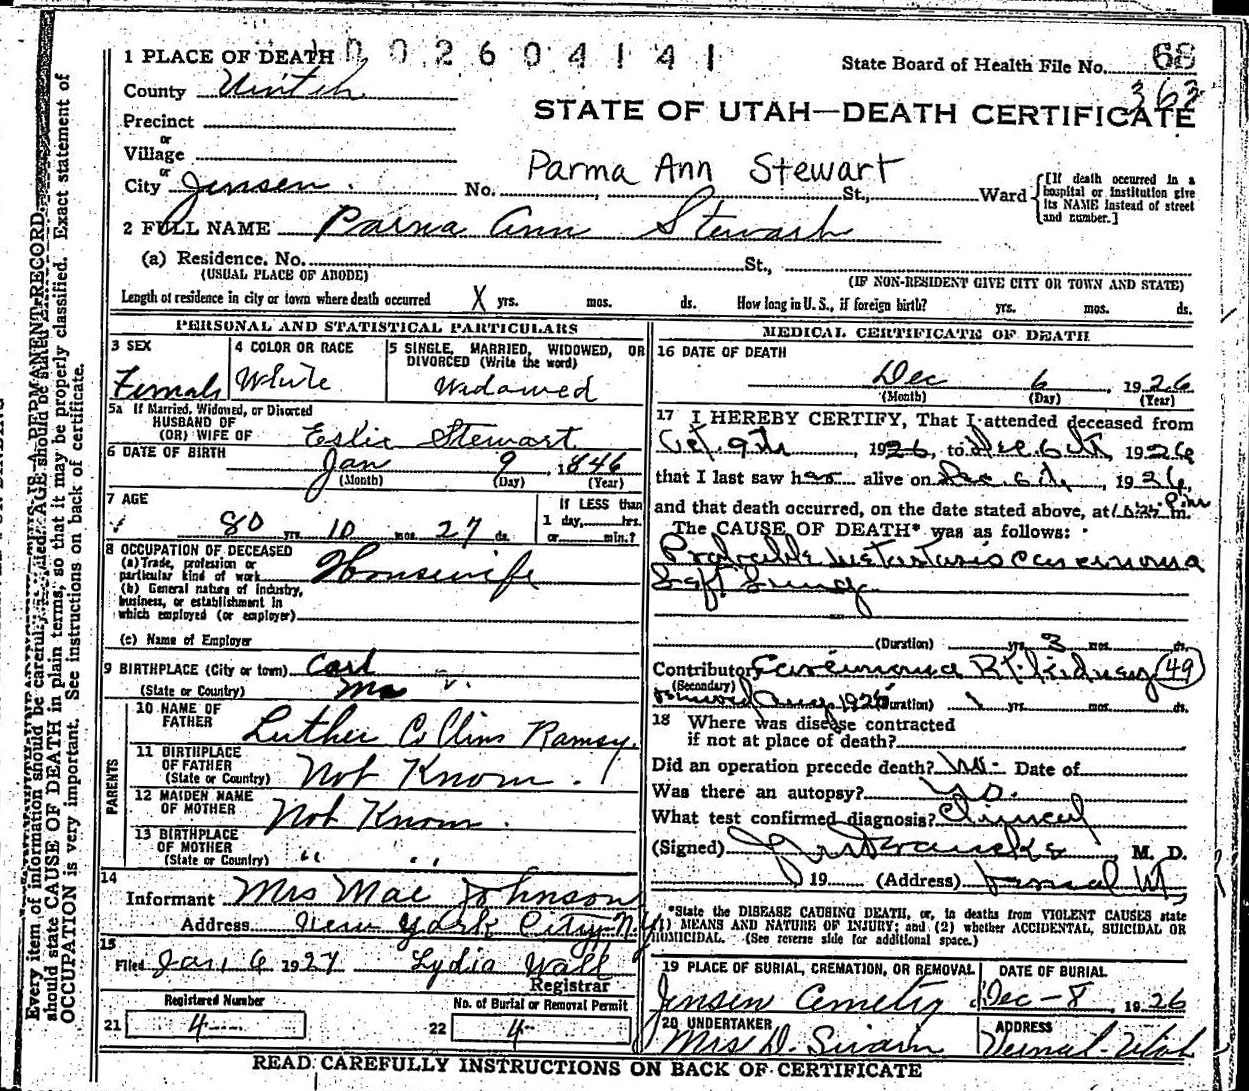 1 PLACE OF DEATH
0 0 2 6 0 4 1 4 1
State Board of Health File No. 68
363
County Uintah
STATE OF UTAH—DEATH CERTIFICATE
Precinct
or
Village
or
City Jensen. No. St., Ward
Parma Ann Stewart
{[If death occurred in a hospital or institution give its NAME instead of street and number.]
2 FULL NAME Parma Ann Stewart
(a) Residence. No. St.,
(USUAL PLACE OF ABODE) (IF NON-RESIDENT GIVE CITY OR TOWN AND STATE)
Length of residence in city or town where death occurred X yrs. mos. ds. How long in U. S., if foreign birth? yrs. mos. ds.
PERSONAL AND STATISTICAL PARTICULARS
3 SEX
Female
4 COLOR OR RACE
White
5 SINGLE, MARRIED, WIDOWED, OR
DIVORCED (Write the word)
Widowed
5a If Married, Widowed, or Divorced
HUSBAND OF
(OR) WIFE OF Stewart
6 DATE OF BIRTH Jan 9, 1846
(Month) (Day) (Year)
7 AGE
80 yrs. 10 mos. 27 ds.
If LESS than
1 day, hrs.
or min.?
8 OCCUPATION OF DECEASED
(a) Trade, profession or
particular kind of work Housewife
(b) General nature of industry,
business, or establishment in
which employed (or employer)
(c) Name of Employer
9 BIRTHPLACE (City or town)
(State or Country) Mo
PARENTS
10 NAME OF
FATHER Luther Collins Ramsy.
11 BIRTHPLACE
OF FATHER
(State or Country) Not Known.
12 MAIDEN NAME
OF MOTHER Not Known.
13 BIRTHPLACE
OF MOTHER
(State or Country) " "
14
Informant Mrs Mae Johnson
Address New York City N.Y.
15
Filed Jan 6 1927 Lydia Wall
Registrar
Registered Number No. of Burial or Removal Permit
21 4 22 4
MEDICAL CERTIFICATE OF DEATH
16 DATE OF DEATH
Dec 6, 1926
(Month) (Day) (Year)
17 I HEREBY CERTIFY, That I attended deceased from
Oct. 9th, 1926, to Dec 6th, 1926
that I last saw her alive on Dec. 6th, 1926,
and that death occurred, on the date stated above, at P.m.
The CAUSE OF DEATH* was as follows:
Probable Metastasis carcinoma
Left Lung
(Duration) yrs. 3 mos. ds.
Contributory Carcinoma Rt. kidney (49)
(Secondary)
Aug 1926 (Duration) 1 yrs. mos. ds.
18 Where was disease contracted
if not at place of death?
Did an operation precede death? Date of
Was there an autopsy? No.
What test confirmed diagnosis? Clinical
(Signed) M. D.
, 19 (Address) Vernal Ut
*State the DISEASE CAUSING DEATH, or, in deaths from VIOLENT CAUSES state
(1) MEANS AND NATURE OF INJURY; and (2) whether ACCIDENTAL, SUICIDAL OR
HOMICIDAL. (See reverse side for additional space.)
19 PLACE OF BURIAL, CREMATION, OR REMOVAL
Jensen Cemetry
DATE OF BURIAL
Dec-8, 1926
20 UNDERTAKER
Mrs D. Swain
ADDRESS
Vernal-Utah
READ CAREFULLY INSTRUCTIONS ON BACK OF CERTIFICATE
Every item of information should be carefully AGE should be PERMANENT RECORD.
should state CAUSE OF DEATH in plain terms, so that it may be properly classified. Exact statement of
OCCUPATION is very important. See instructions on back of certificate.